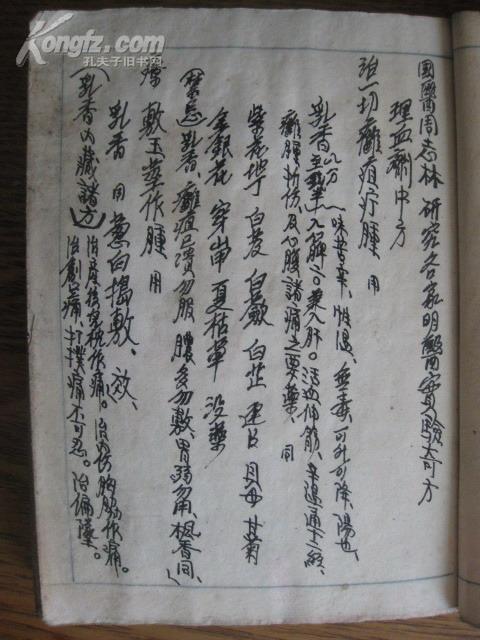 Kongfz.com
孔夫子旧书网
國醫周志林研究各家明醫實驗奇方
理血劑中方
治一切癰疽疔腫 用
乳香 味苦辛、性温、無毒、可升可降、陽也、
入肝。活血伸筋、辛温通十二經、
癰腫折傷、及心腹諸痛之要藥、同
紫花地丁 白芨 白蘞 白芷 連 貝母 甘菊
金銀花 穿山甲 夏枯草 没藥
(禁忌)乳香、癰疽已潰勿服 膿多勿敷 胃弱勿用、楓香同、
敷玉莖作腫 用
乳香 同 葱白搗敷、效、
(乳香內藏諸方) 作痛。治 胸脇作痛。
治 痛、打撲痛不可忍。治偏墜。